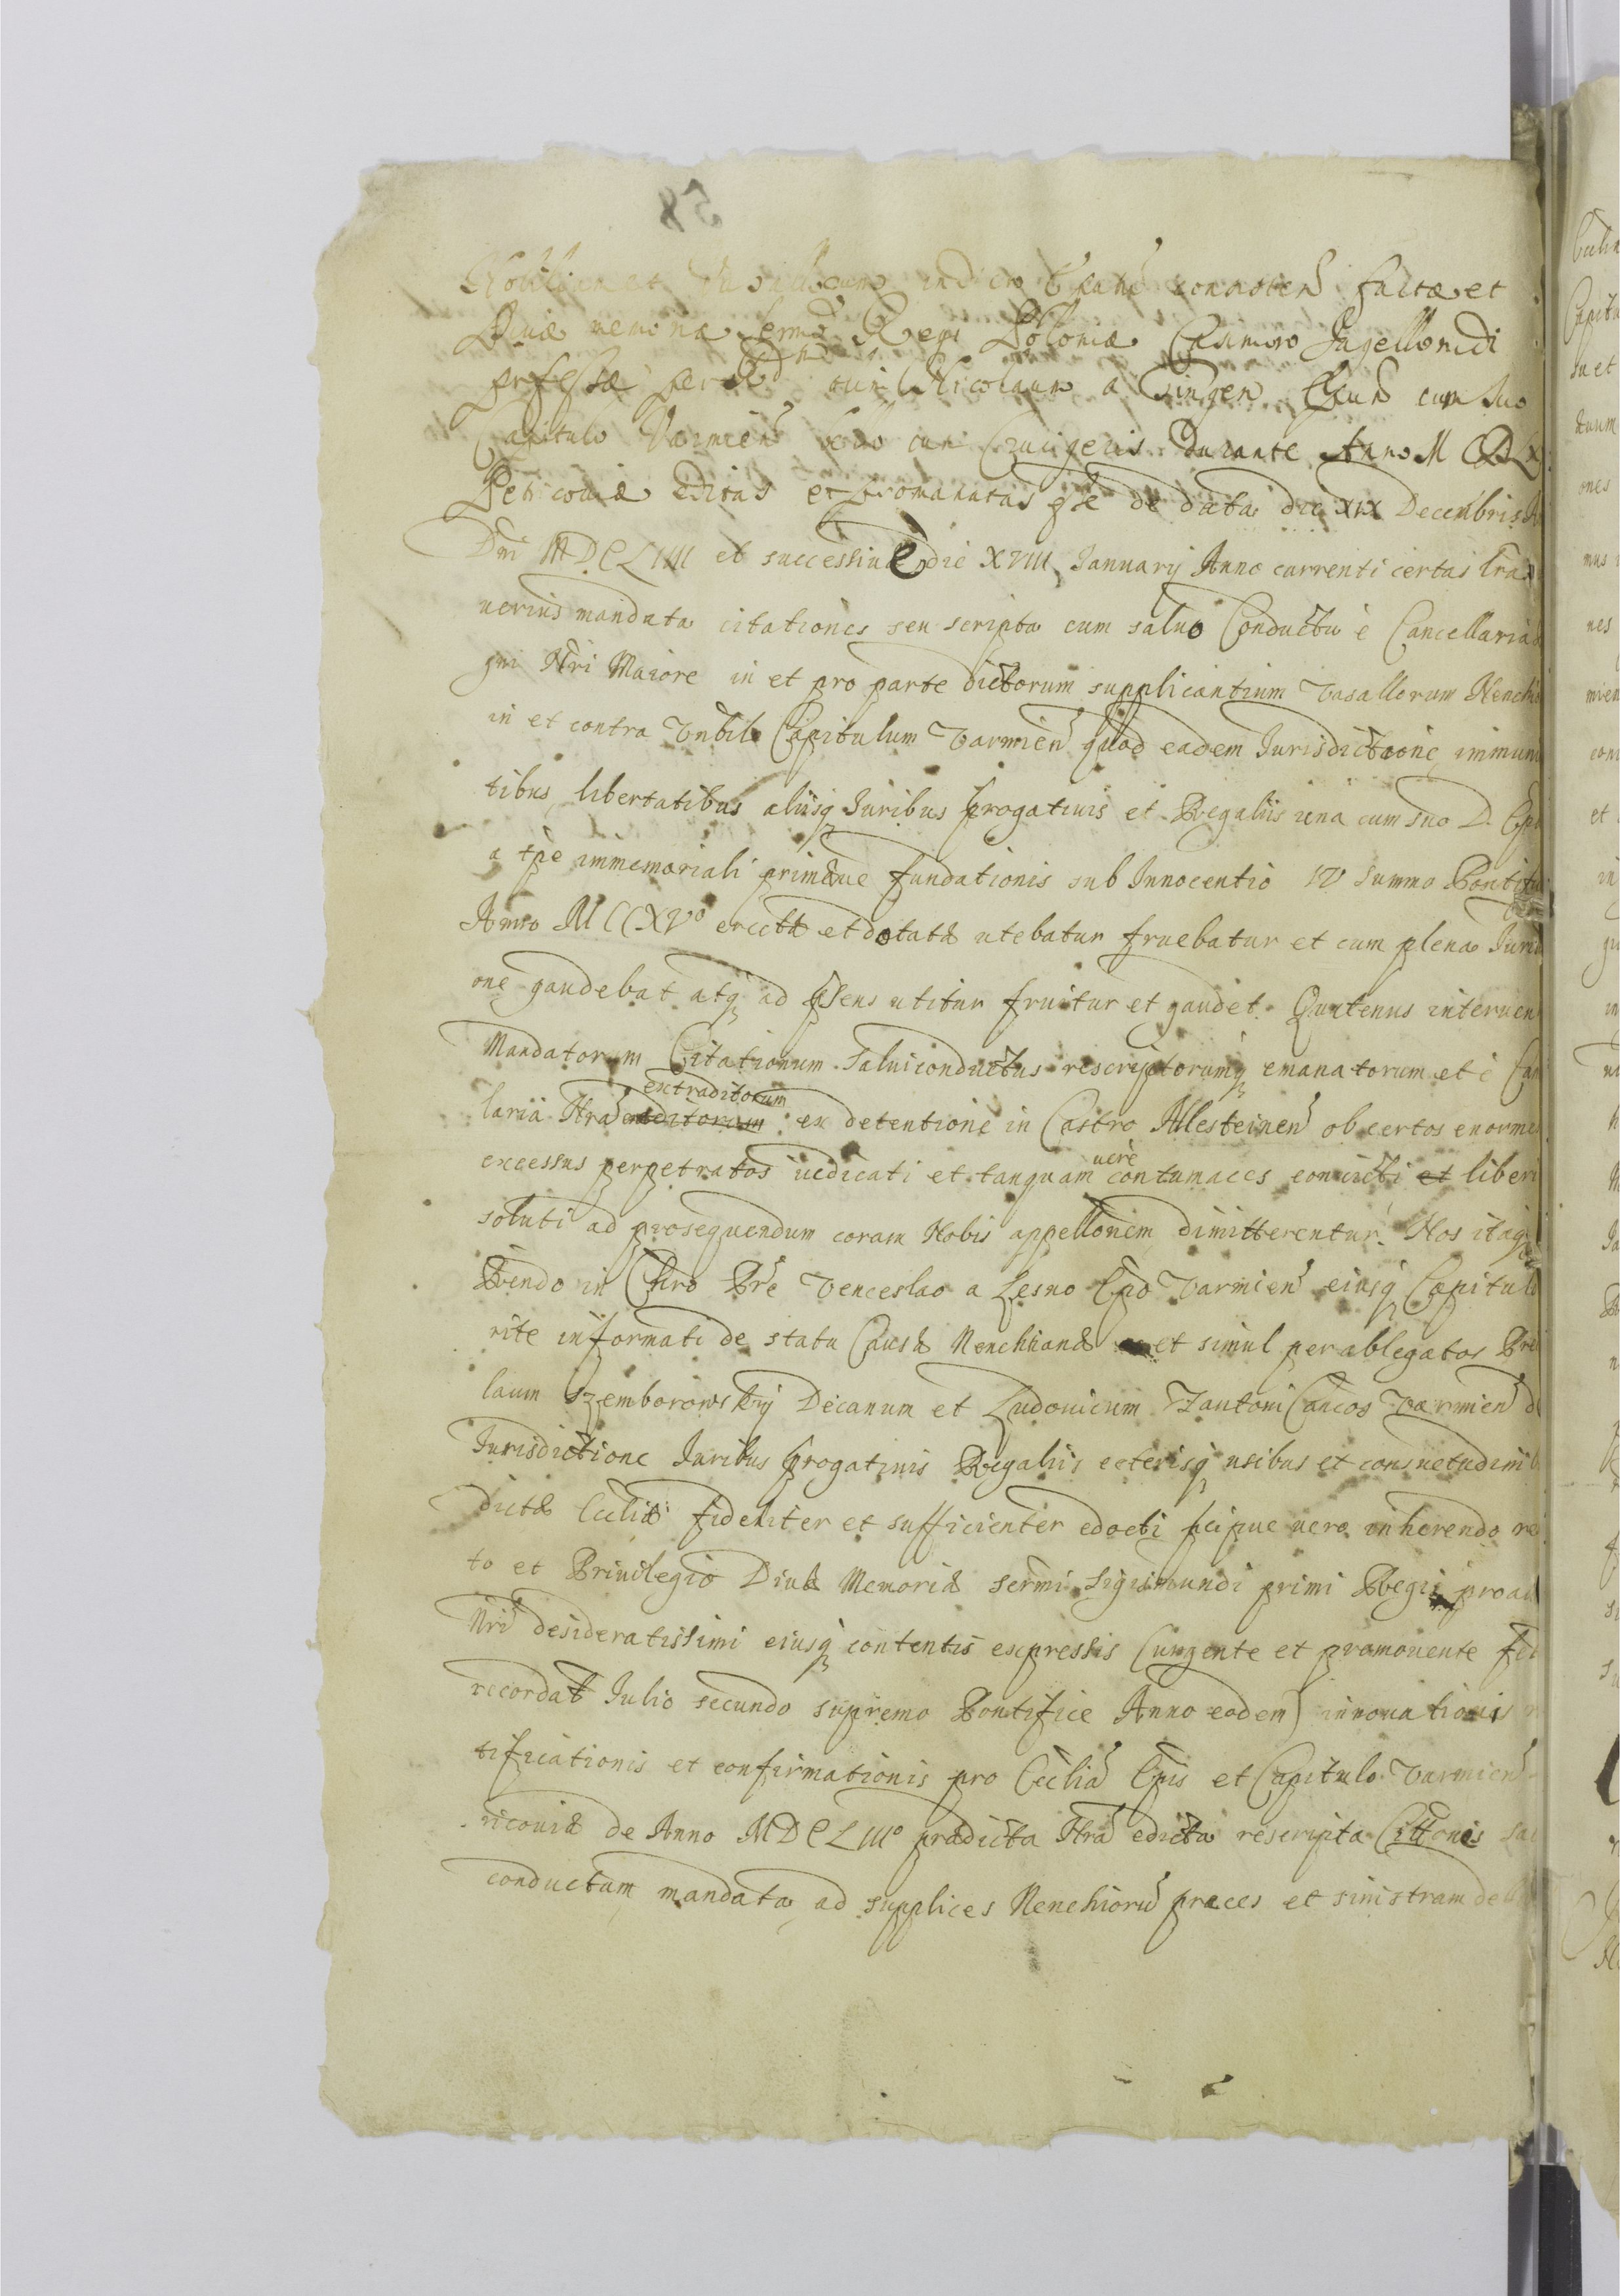 58
et Vasallum in dicto connoten facta et
Diuæ memoriæ Sermo Regi Poloniæ Casimiro Jagellonidi
professæ per tum Nicolaum a Tüngen Epum cum suo
Capitulo Varmien bello cum Crucigeris durante Anno M CD LX
Petricouiæ editas et promanatas esse de data die XIX Decembris
Dni MDCLIIII et successiue die XVIII Januarij Anno currenti certas Lras
uerius mandata citationes seu scripta cum saluo Conductu è Cancellaria
gni Nri Maiore in et pro parte dictorum supplicantium Vasallorum Nenchi
in et contra Vnble Capitulum Varmien quod eadem Jurisdictione immuni
tibus libertatibus aliisq Juribus progatiuis et Regaliis una cum suo D. Epo
a tpe immemoriali primæue fundationis sub Innocentio IV Summo Pontifi
Anno MCCXVo erectæ et dotatæ utebatur fruebatur et cum plena Jurisd
one gaudebat atq ad psens utitur fruitur et gaudet. Quatenus interuen
Mandatorum Citationum Saluiconductus rescriptorumq emanatorum et è Can
extraditorum
laria Nra editorum ex detentione in Castro Allesteinen ob certos enormes
uere
excessus perpetratos iudicati et tanquam contumaces conuicti et liberi
soluti ad prosequendum coram Nobis appellonem dimitterentur. Nos itaq
Rendo in Chro Pre Venceslao a Lesno Epo Varmien eiusq Capitulo
rite informati de statu Causæ Nenchianæ et simul per ablegatos
laum Szemborowskij Decanum et Ludouicum Fantoni Cancos Varmien d
Jurisdictione Juribus progatiuis Regaliis ceterisq usibus et consuetudinib
dictæ Eccliæ fideliter et sufficienter edocti pcipue uero inherendo
to et Priuilegio Diuæ Memoriæ Sermi Sigismundi primi Regis proaui
Nri desideratissimi eiusq contentis expressis (urgente et promouente fel
recordat Julio secundo supremo Pontifice Anno eodem) innouationis
tificationis et confirmationis pro Ecclia Epis et Capitulo Varmien
ricouiæ de Anno MDCLIIIo prædicta Nra edicta rescripta Cittones
conductum mandata ad supplices Nenchioru preces et sinistram